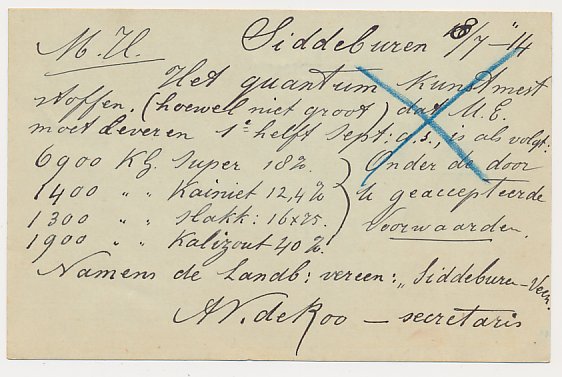 Siddeburen 18/7 -"14
M. H.
Het quantum Kunstmest
stoffen. (hoewel niet groot) dat M. E.
moet leveren 1e helft Sept: a.s., is als volgt:
6900 KG Super 18%
1400 " " Kainiet 12,4%
1300 " " Slakk: 16x75.
1900 " " Kalizout 40%.
Onder de door
U geaccepteerde
Voorwaarden.
Namens de Landb: vereen: "Siddeburen-Veen.
de Roo — secretaris